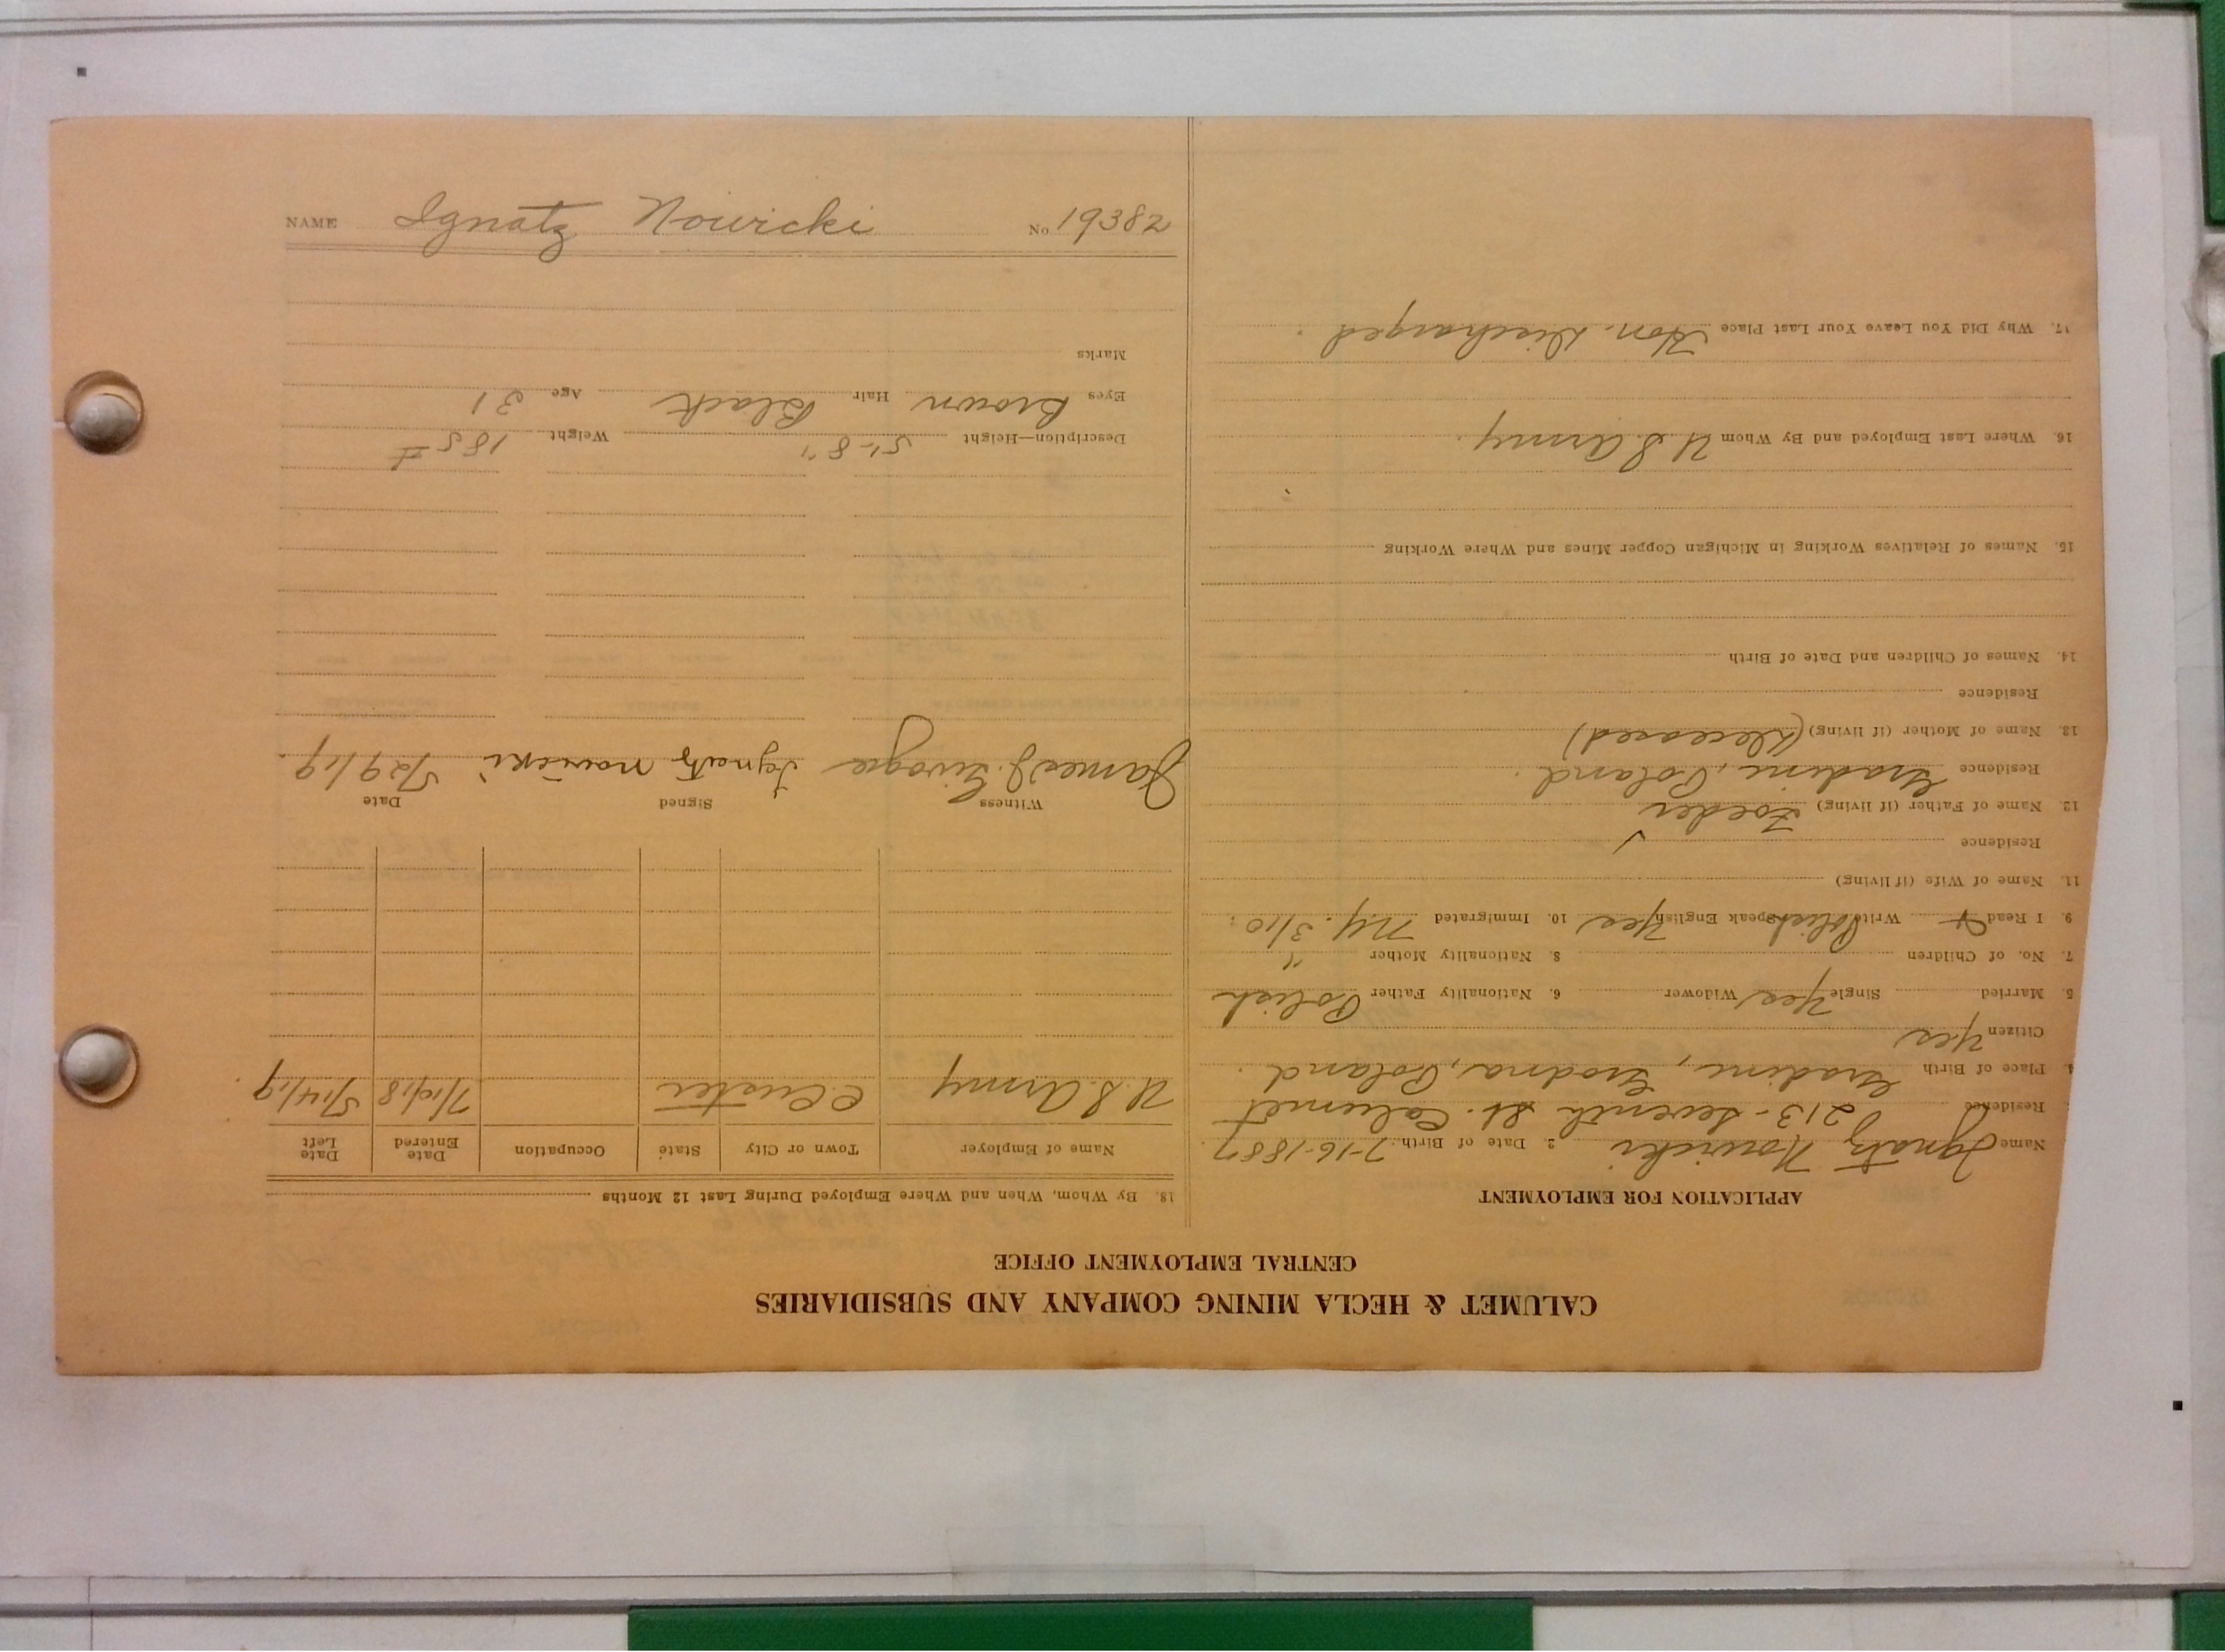 CALUMET & HECLA MINING COMPANY AND SUBSIDIARIES
CENTRAL EMPLOYMENT OFFICE
APPLICATION FOR EMPLOYMENT
Name Ignatz Nowicki 2. Date of Birth 7-16-1887
Residence 213-Seventh St. Calumet
4. Place of Birth Gradini, Grodna, Poland.
Citizen Yes
5. Married Single Yes Widower 6. Nationality Father Polish
7. No. of Children 8. Nationality Mother "
9. I Read & Write Polish Speak English Yes 10. Immigrated N.Y. 3/10.
11. Name of Wife (if living)
Residence
12. Name of Father (if living)
Residence Gradini, Poland.
13. Name of Mother (if living) (Deceased)
Residence
14. Names of Children and Date of Birth
15. Names of Relatives Working in Michigan Copper Mines and Where Working
16. Where Last Employed and By Whom U S. Army.
17. Why Did You Leave Your Last Place Hon. Discharged.
18. By Whom, When and Where Employed During Last 12 Months
Name of Employer Town or City State Occupation Date Entered Date Left
U.S. Army C. Custer 7/10/18 5/14/19.
Witness Signed Date
James J. Ignatz Nowicki 5/29/19.
Description—Height 5'-8" Weight 185#
Eyes Brown Hair Black Age 31
Marks
NAME Ignatz Nowicki No. 19382